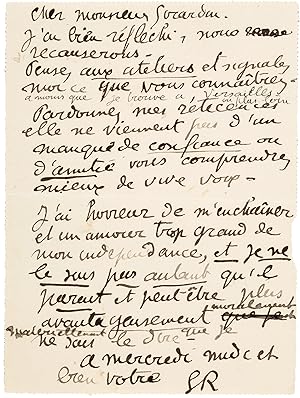 Cher monsieur Girardin.
J'ai bien réfléchi, nous
recauserons.
Pensez aux ateliers et signalez
moi ce que vous connaîtrez
à moins que je trouve à Versailles ou plus loin
Pardonnez mes réticences
elle ne viennent pas d'un
manque de confiance ou
d'amitié vous comprendrez
mieux de vive voix.
J'ai horreur de m'enchaîner
et un amour trop grand de
mon indépendance, et je ne
le suis pas autant qu'il
parait et peut être plus
moralement
avantageusement
matériellement que je
ne sais le dire
a mercredi midi et
bien vôtre GR